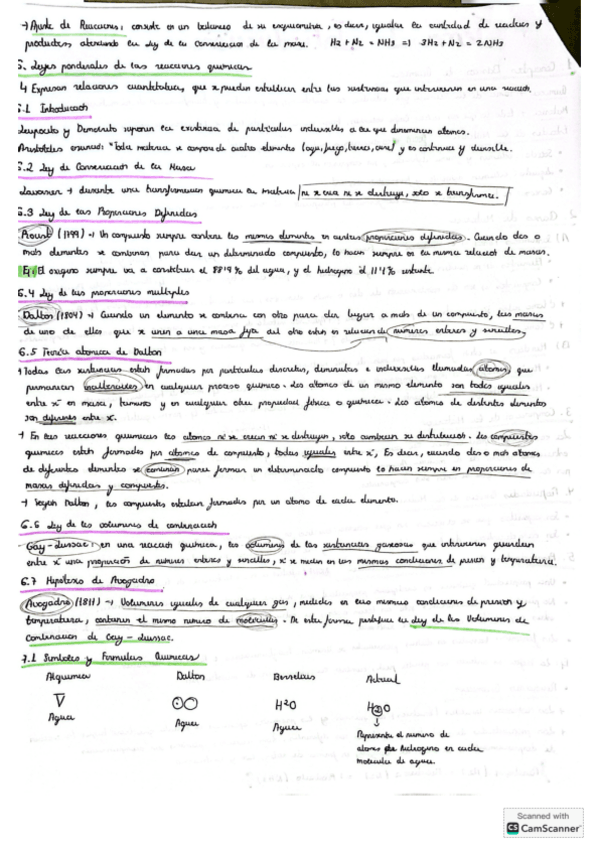 → Ajuste de Reacciones: consiste en un balanceo de su esquema, es decir, igualar la cantidad de reactivos y
productos, atendiendo a la ley de la conservación de la masa. H2 + N2 = NH3 => 3H2 + N2 = 2NH3
6. Leyes ponderales de las reacciones químicas
Expresan relaciones cuantitativas, que se pueden establecer entre las sustancias que intervienen en una reacción.
6.1 Introducción
Leucipo y Demócrito suponen la existencia de partículas indivisibles a las que denominaron átomos.
Aristóteles enunció: "Toda materia se compone de cuatro elementos (agua, fuego, tierra, aire) y es continua y divisible.
6.2 Ley de Conservación de la Masa
Lavoisier → durante una transformación química la materia ni se crea ni se destruye, solo se transforma.
6.3 Ley de las Proporciones Definidas
Proust (1799) → Un compuesto siempre contiene los mismos elementos en ciertas proporciones definidas. Cuando dos o
más elementos se combinan para dar un determinado compuesto, lo hacen siempre en la misma relación de masas.
Ej: El oxígeno siempre va a constituir el 88'9% del agua, y el hidrógeno el 11'1% restante.
6.4 Ley de las proporciones múltiples
Dalton (1804) → Cuando un elemento se combina con otro para dar lugar a más de un compuesto, las masas
de uno de ellos que se unen a una masa fija del otro están en relación de números enteros y sencillos.
6.5 Teoría atómica de Dalton
Todas las sustancias están formadas por partículas discretas, diminutas e indivisibles llamadas átomos, que
permanecen inalterables en cualquier proceso químico. Los átomos de un mismo elemento son todos iguales
entre sí en masa, tamaño y en cualquier otra propiedad física o química. Los átomos de distintos elementos
son diferentes entre sí.
→ En las reacciones químicas los átomos ni se crean ni se destruyen, solo cambian su distribución. Los compuestos
químicos están formados por átomos de compuesto, todos iguales entre sí, Es decir, cuando dos o más átomos
de diferentes elementos se combinan para formar un determinado compuesto lo hacen siempre en proporciones de
masas definidas y compuestos.
→ Según Dalton, los compuestos estaban formados por un átomo de cada elemento.
6.6 Ley de los volúmenes de combinación
Gay-Lussac: en una reacción química, los volúmenes de las sustancias gaseosas que intervienen guardan
entre sí una proporción de números enteros y sencillos, si se miden en las mismas condiciones de presión y temperatura.
6.7 Hipótesis de Avogadro
Avogadro (1811) → Volúmenes iguales de cualquier gas, medidos en las mismas condiciones de presión y
temperatura, contienen el mismo número de moléculas. De esta forma justifica la ley de los Volúmenes de
Combinación de Gay-Lussac.
7.1 Símbolos y Fórmulas Químicas
Alquimia Dalton Berzelius Actual
H²O H2O
Agua Agua Agua
Representa el número de
átomos de hidrógeno en cada
molécula de agua.
Scanned with
CS CamScanner